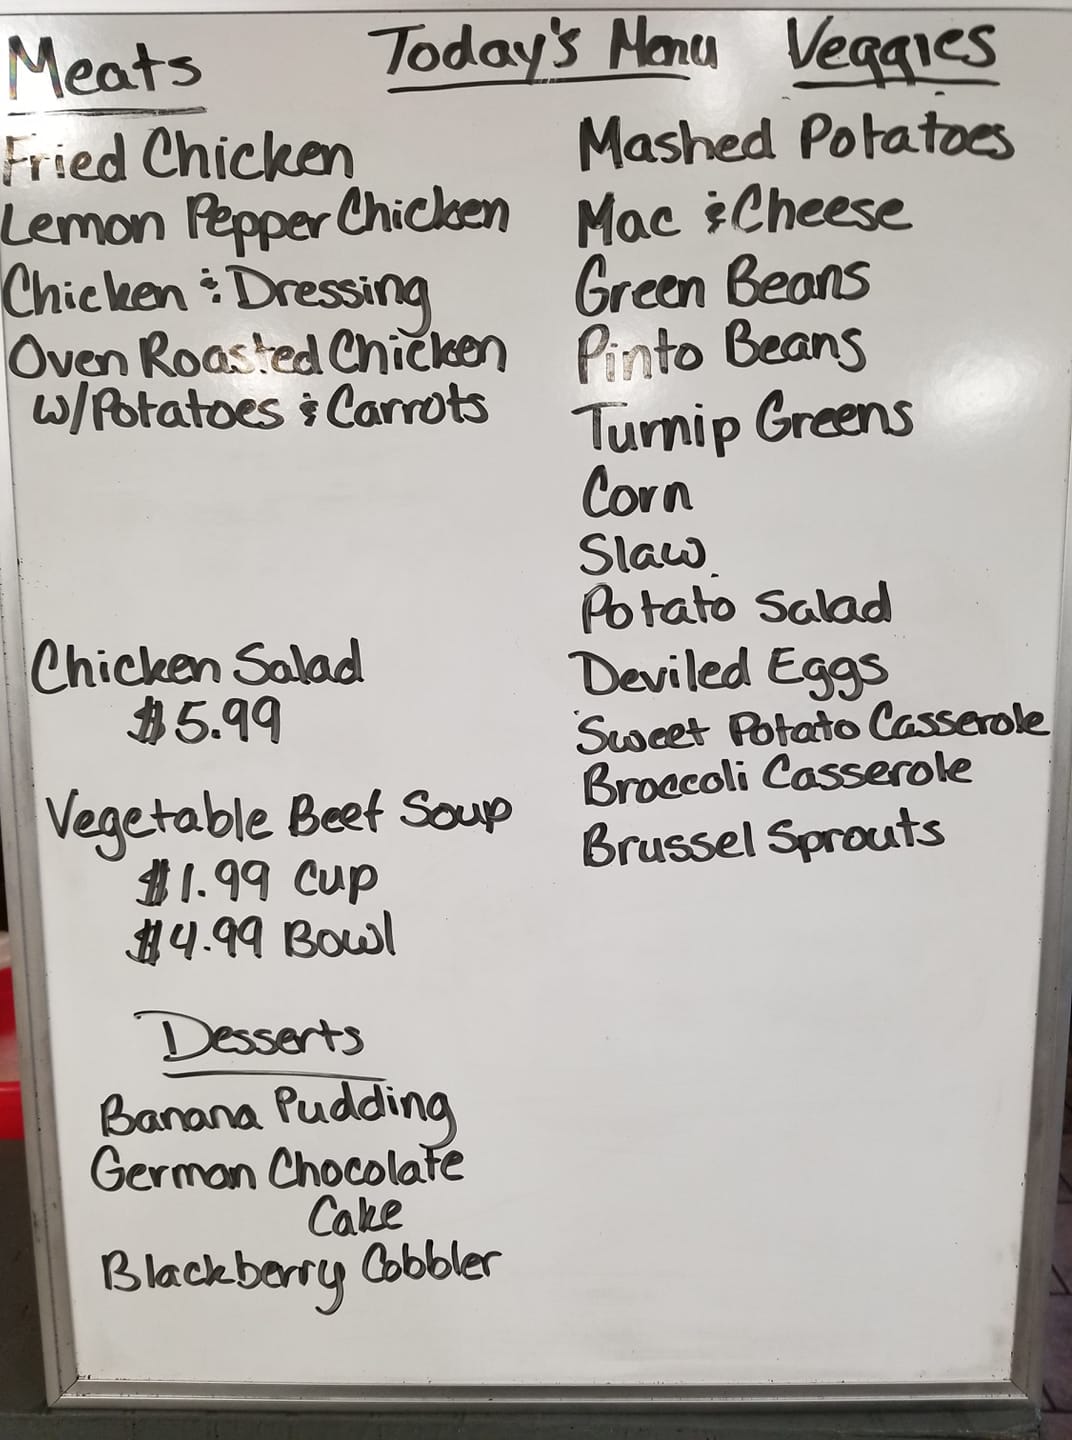 Today's Menu
Meats
Fried Chicken
Lemon Pepper Chicken
Chicken & Dressing
Oven Roasted Chicken
w/Potatoes & Carrots
Chicken Salad
$5.99
Vegetable Beef Soup
$1.99 Cup
$4.99 Bowl
Desserts
Banana Pudding
German Chocolate
Cake
Blackberry Cobbler
Veggies
Mashed Potatoes
Mac & Cheese
Green Beans
Pinto Beans
Turnip Greens
Corn
Slaw
Potato Salad
Deviled Eggs
Sweet Potato Casserole
Broccoli Casserole
Brussel Sprouts